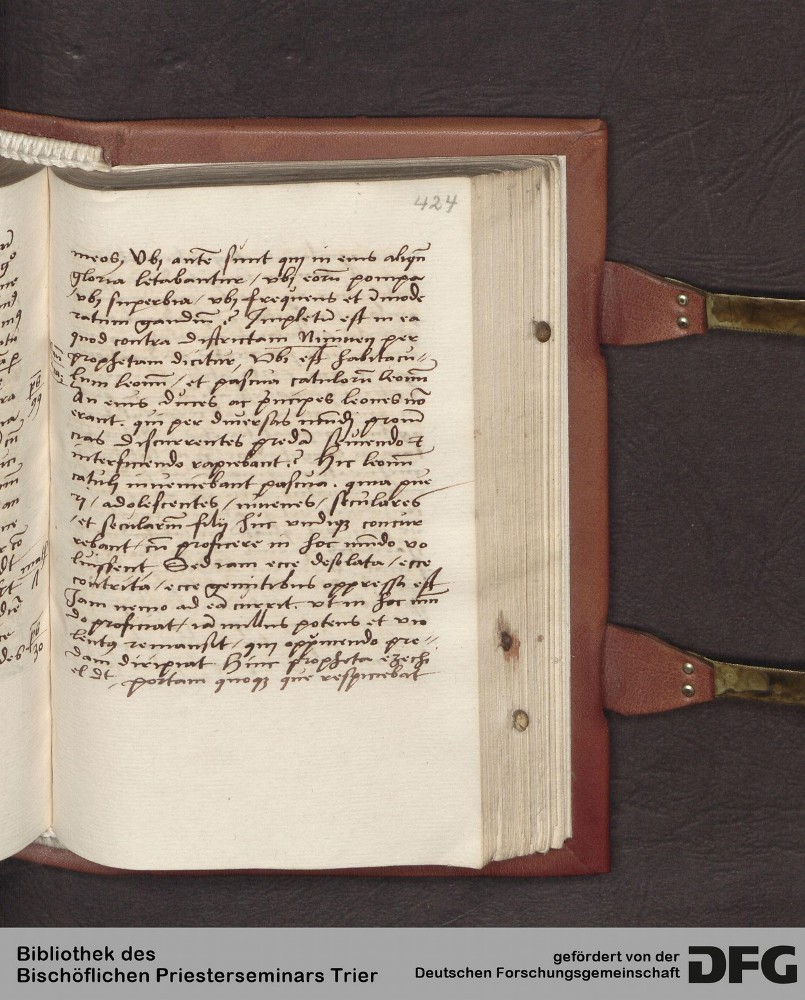 424
meos, Vbi ante sunt qui in eius aliqn̄
gloria letabantur / vbi eorū pompa
/ vbi superbia / vbi frequens et īmode
ratum gaudiū ? Impletū est in ea
quod contra districtam Niniuen per
prophetam dicitur, Vbi est habitacu-
lum leonū / et pascua catulorū leonū
An eius duces ac p̄ncipes leones nō
erant. qui per diuersas mūdj prouī
cias discurrentes predā seuiendo et
interficiendo rapiebant ? Hic leonū
catuli inueniebant pascua. quia pue
ri / adolescentes / iuuenes / seculares
/ et seculariū filij huc vndiqȝ concur
rebant / cū proficere in hoc mūdo vo
luissent Sed iam ecce desolata / ecce
contrita / ecce gemitibus oppressa est
Iam nemo ad eā currit. vt in hoc mū
do proficiat / iā nullus potens et vio
lentus remansit / qui opp̄mendo pre-
dam diripiat Hinc propheta ezechi
el dt. portam quoqȝ que respiciebat
Bibliothek des
Bischöflichen Priesterseminars Trier
gefördert von der
Deutschen Forschungsgemeinschaft
DFG